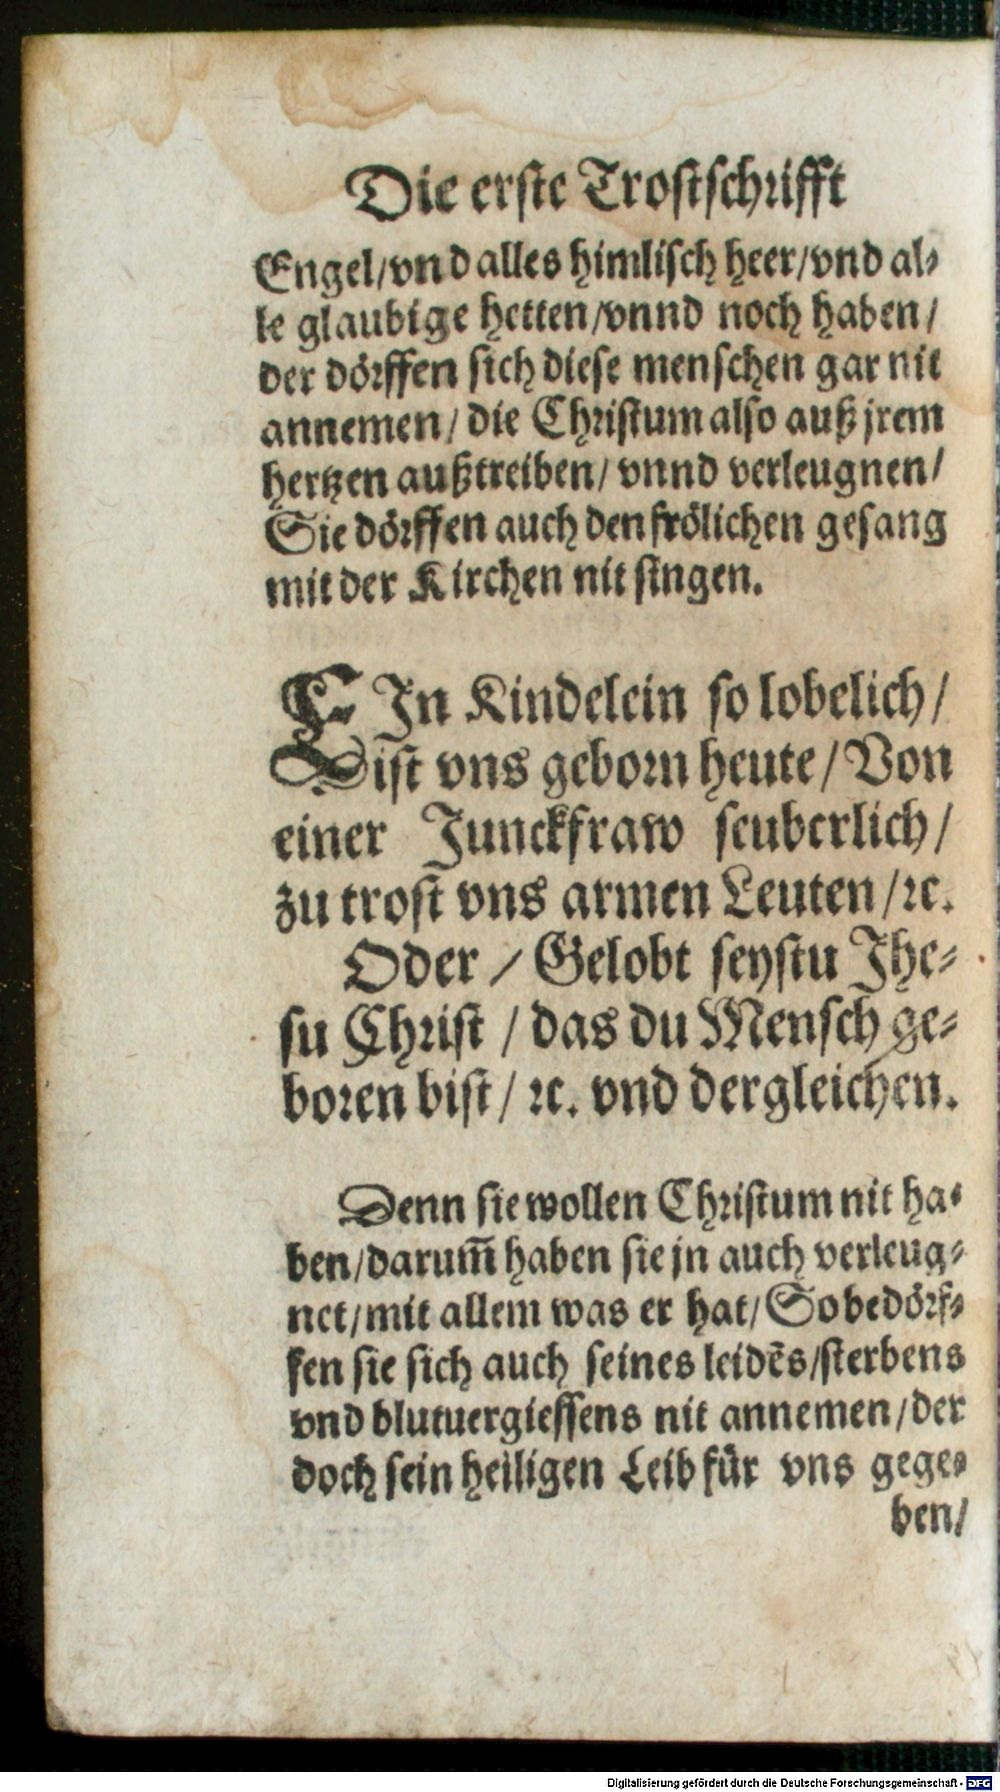 Die erste Trostschrifft
Engel/vnd alles himlisch heer/vnd al⸗
le glaubige hetten/vnnd noch haben/
der dörffen sich diese menschen gar nit
annemen/die Christum also auß jrem
hertzen außtreiben/vnnd verleugnen/
Sie dörffen auch den frölichen gesang
mit der Kirchen nit singen.
EIn Kindelein so lobelich/
ist vns geborn heute/Von
einer Junckfraw seuberlich/
zu trost vns armen Leuten/ꝛc.
Oder/Gelobt seystu Jhe⸗
su Christ/das du Mensch ge⸗
boren bist/ꝛc. vnd dergleichen.
Denn sie wollen Christum nit ha⸗
ben/darum̃ haben sie jn auch verleug⸗
net/mit allem was er hat/So bedörf⸗
fen sie sich auch seines leidẽs/sterbens
vnd blutuergiessens nit annemen/der
doch sein heiligen Leib für vns gege⸗
ben/
Digitalisierung gefördert durch die Deutsche Forschungsgemeinschaft - DFG